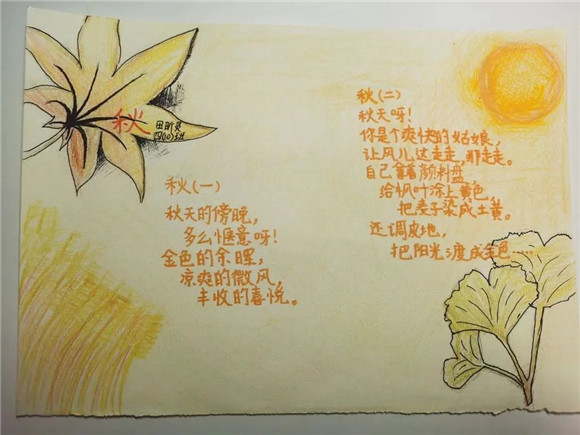 秋
秋(一)
秋天的傍晚,
多么惬意呀!
金色的余晖,
凉爽的微风,
丰收的喜悦。
秋(二)
秋天呀!
你是个爽快的姑娘,
让风儿这走走,那走走。
自己拿着颜料盘
给枫叶涂上黄色,
把麦子染成土黄。
还调皮地,
把阳光镀成金色……